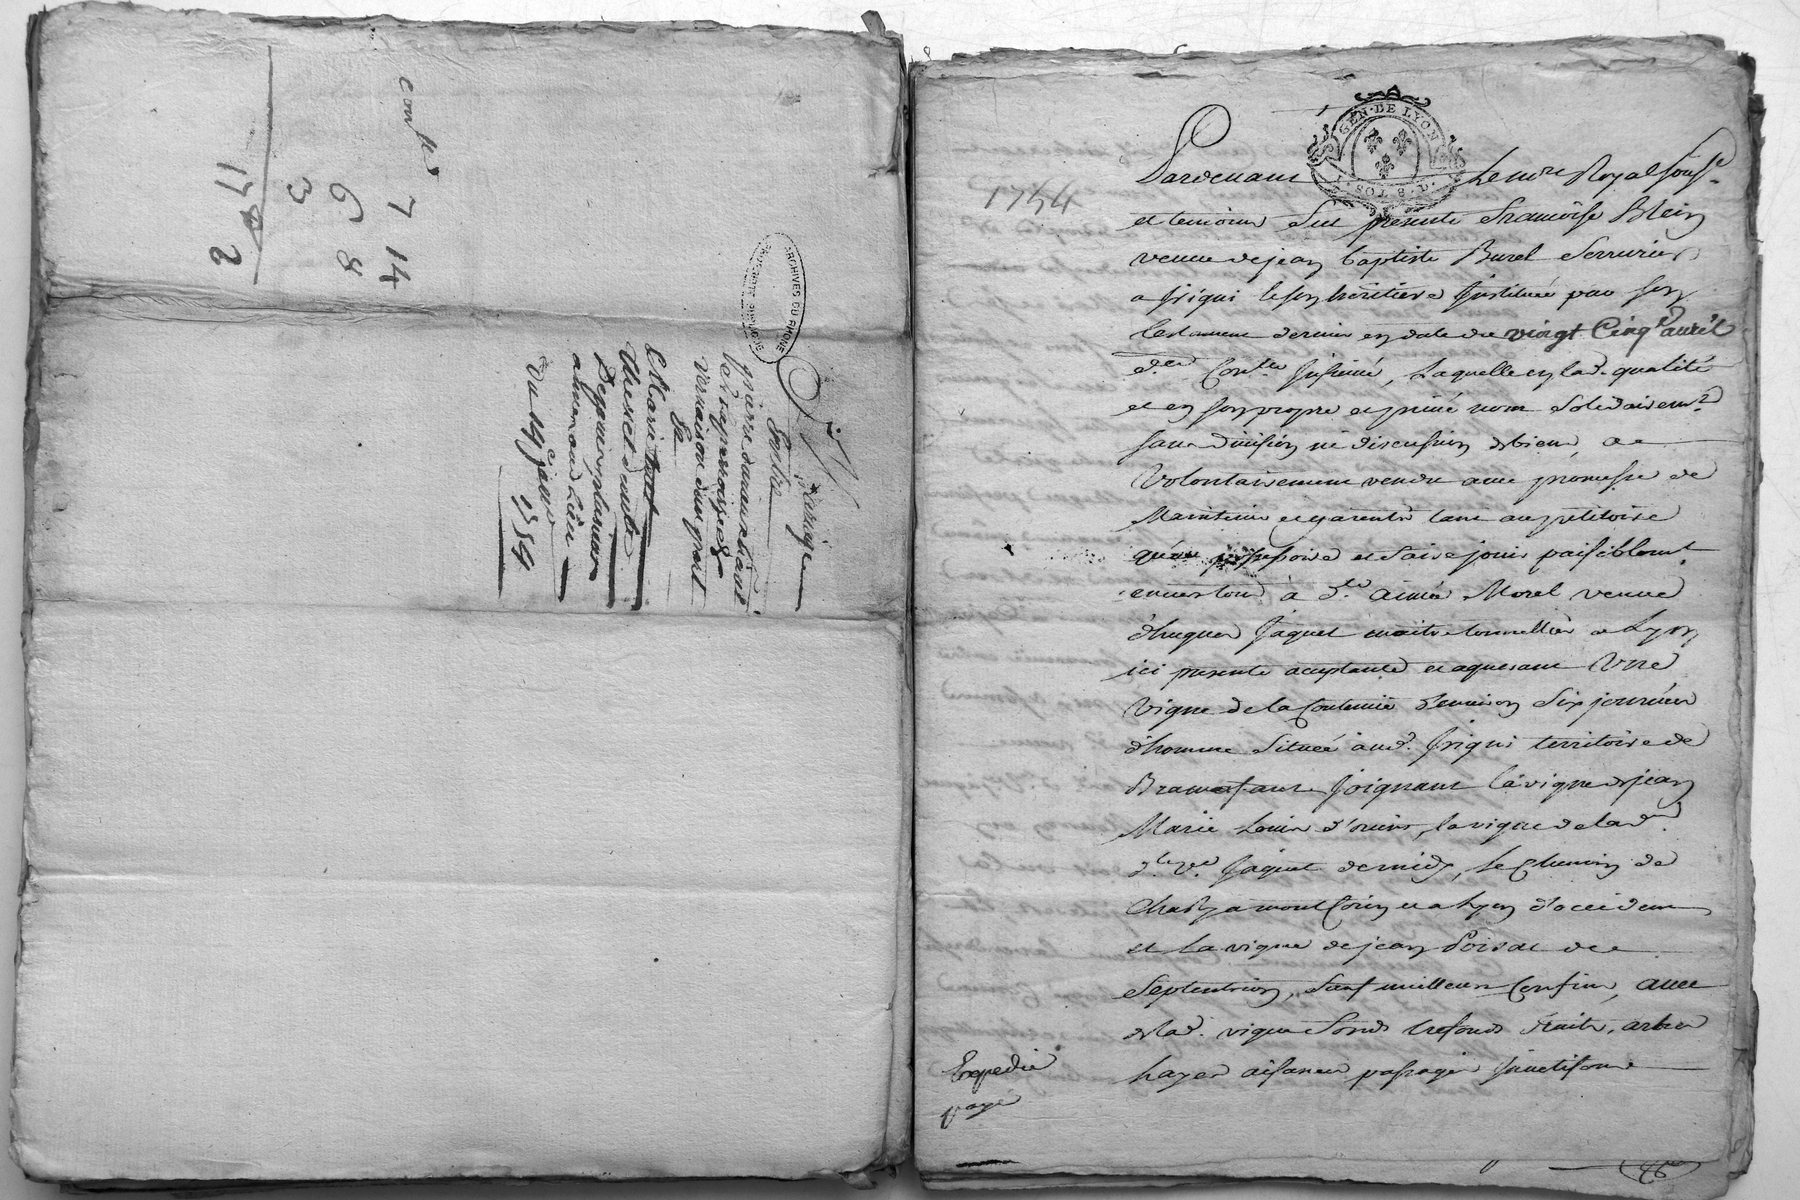 Contrd 7 14
6 8
3
17 2
ARCHIVES DU RHONE
Mariage
Entre
Pierre damien
Vernaison d'une part
Et
Marie
d'autre
Du 19e janv.
1754
GEN. DE LYON
SOLS. D.
1754
Pardevant Le nore Royal sousé
et temoins fut presente françoise Blein
veuve de jean baptiste Burel Serrurier
a jrigni le son heritiere jnstituée par son
testament dernier en date du vingt Cinq avril
der Conlé jnsinué, Laquelle en lad. qualité
et en son propre et privé nom solidairemt
sans division ni discussion de biens, a
Volontairement vendu avec promesse de
Maintenir et garentir tant au petitoire
qu'au possessoire et faire jouir paisiblemt
envers tous à dle aimée Morel veuve
d'hugues jaquet maitre tonnellier a Lyon
ici presente acceptante et aquerant Une
Vigne de la Contenue d'environ Six journées
d'homme Située aud. jrigni territoire de
Bramafant joignant la vigne de jean
Marie Louis d'orient, la vigne de lad.
dle ve jaquet de midy, le Chemin de
Charly a montcorin et a Lyon d'occident
et la vigne de jean Poisat de
Septentrion, Sauf meilleurs Confins, avec
de lad. vigne fonds trefonds fruits, arbres
hayes aisances passages
Expedié
payé